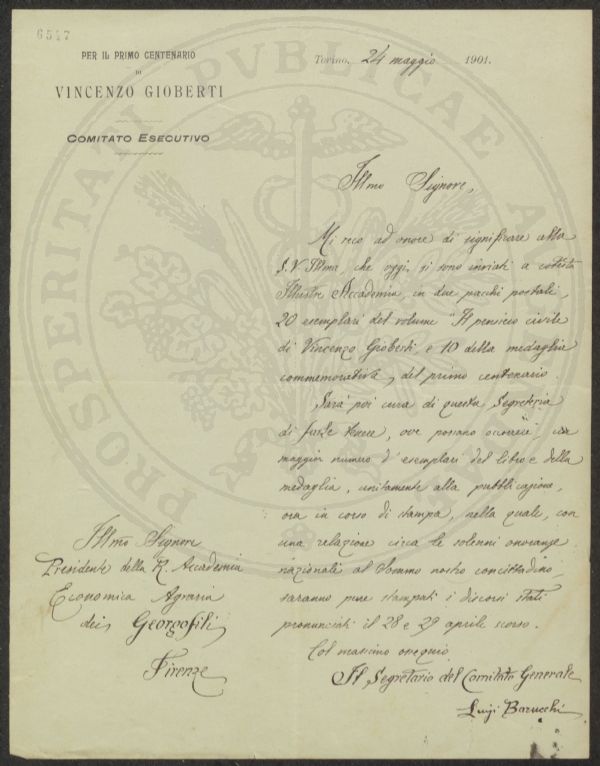 6547
PER IL PRIMO CENTENARIO
DI
VINCENZO GIOBERTI
COMITATO ESECUTIVO
Torino, 24 maggio 1901.
Illmo Signore,
Mi reco ad onore di significare alla
S. V. Illma, che oggi si sono inviati a cotesta
Illustre Accademia, in due pacchi postali,
20 esemplari del volume "Il pensiero civile
di Vincenzo Gioberti, e 10 della medaglia
commemorativa, del primo centenario.
Sarà poi cura di questa Segreteria
di farle tenere, ove possano occorrere, un
maggior numero d'esemplari del libro e della
medaglia, unitamente alla pubblicazione,
ora in corso di stampa, nella quale, con
una relazione circa le solenni onoranze
nazionali al Sommo nostro concittadino,
saranno pure stampati i discorsi stati
pronunciati il 28 e 29 aprile scorso.
Col massimo ossequio
Il Segretario del Comitato Generale
Luigi Barucchi
Illmo Signore
Presidente della R. Accademia
Economica Agraria
dei Georgofili
Firenze
PROSPERITATI PVBLICAE A